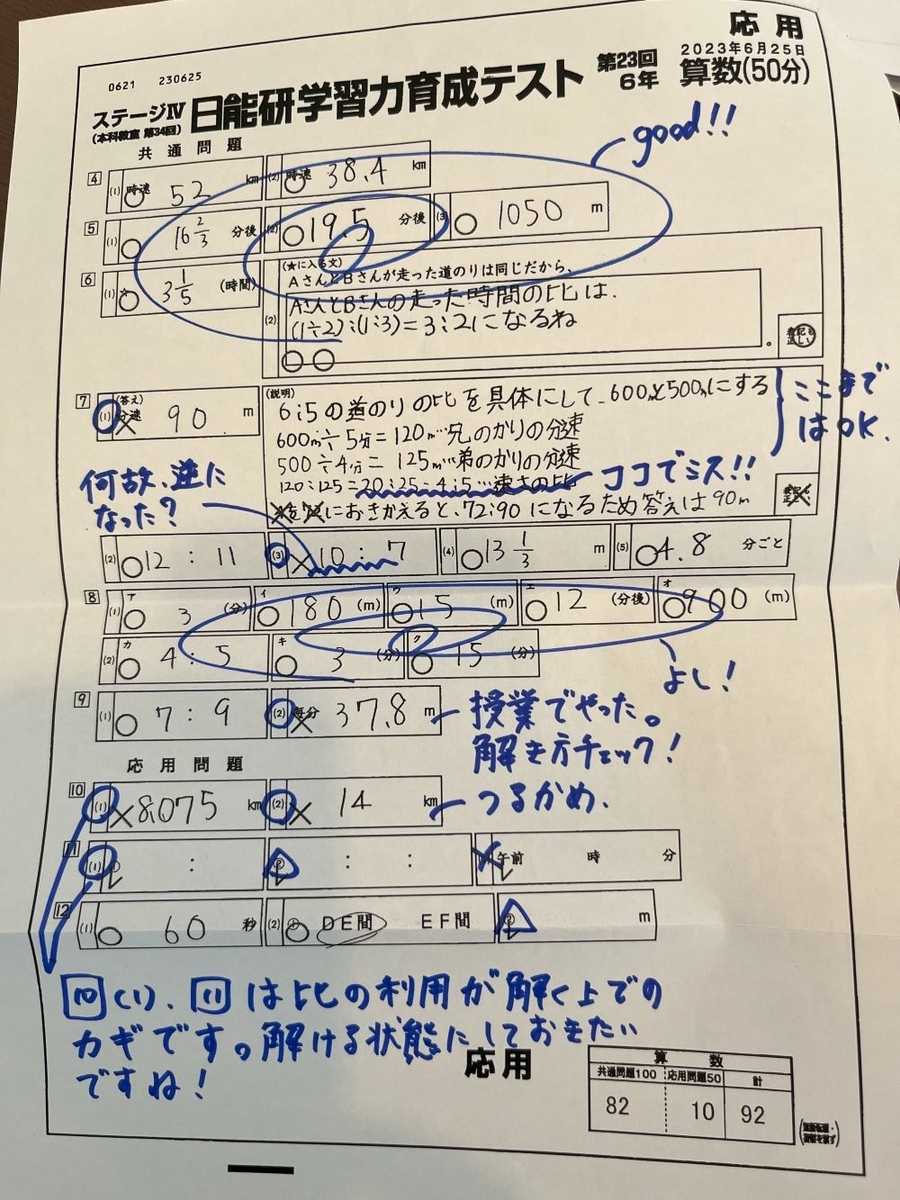 応用
0621 230625
2023年6月25日
ステージⅣ 日能研学習力育成テスト 第23回 6年 算数(50分)
(本科教室 第34回)
共通問題
good!!
4 (1) 時速 52 km (2) 時速 38.4 km
5 (1) 16 2/3 分後 (2) 19.5 分後 (3) 1050 m
6 (1) 3 1/5 (時間) (2) (★に入る文)
AさんとBさんが走った道のりは同じだから、
AさんとBさんの走った時間の比は.
(1÷2):(1÷3)=3:2になるね
。
7 (1) (答え) 分速 90 m
(説明)
6:5の道のりの比を具体にして 600mと500mにする
600m÷5分=120m…兄のかりの分速
500÷4分=125m…弟のかりの分速
120:125=20:25=4:5…速さの比
におきかえると、72:90になるため答えは90m
ここまで
はOK.
ココでミス!!
何故、逆に
なった?
(2) 12 : 11 (3) 10 : 7 (4) 13 1/3 m (5) 4.8 分ごと
8 (1) ア 3 (分) イ 180 (m) ウ 15 (m) エ 12 (分後) オ 900 (m)
(2) カ 4 : 5 キ 3 (分) ク 15 (分)
よし!
9 (1) 7 : 9 (2) 毎分 37.8 m
授業でやった。
解き方チェック!
応用問題
10 (1) 8.075 km (2) 14 km
つるかめ.
11 (1) : : : 午前 時 分
12 (1) 60 秒 (2) DE間 EF間 m
10 (1)、11 は比の利用が解く上での
カギです。解ける状態にしておきたい
ですね!
応用
算数
共通問題100 応用問題50 計
82 10 92